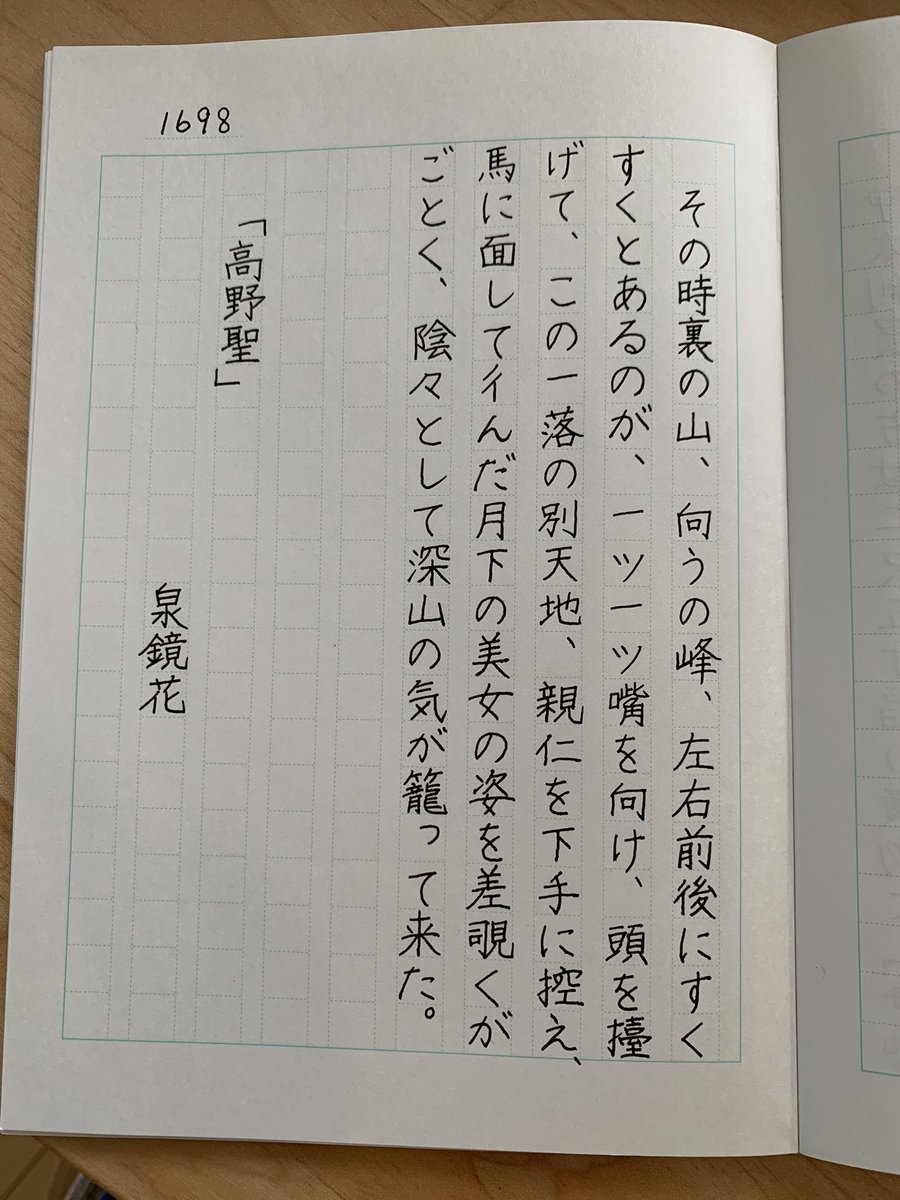 1698
その時裏の山、向うの峰、左右前後にすく
すくとあるのが、一ツ一ツ嘴を向け、頭を擡
げて、この一落の別天地、親仁を下手に控え、
馬に面して彳んだ月下の美女の姿を差覗くが
ごとく、陰々として深山の気が籠って来た。
「高野聖」
泉鏡花